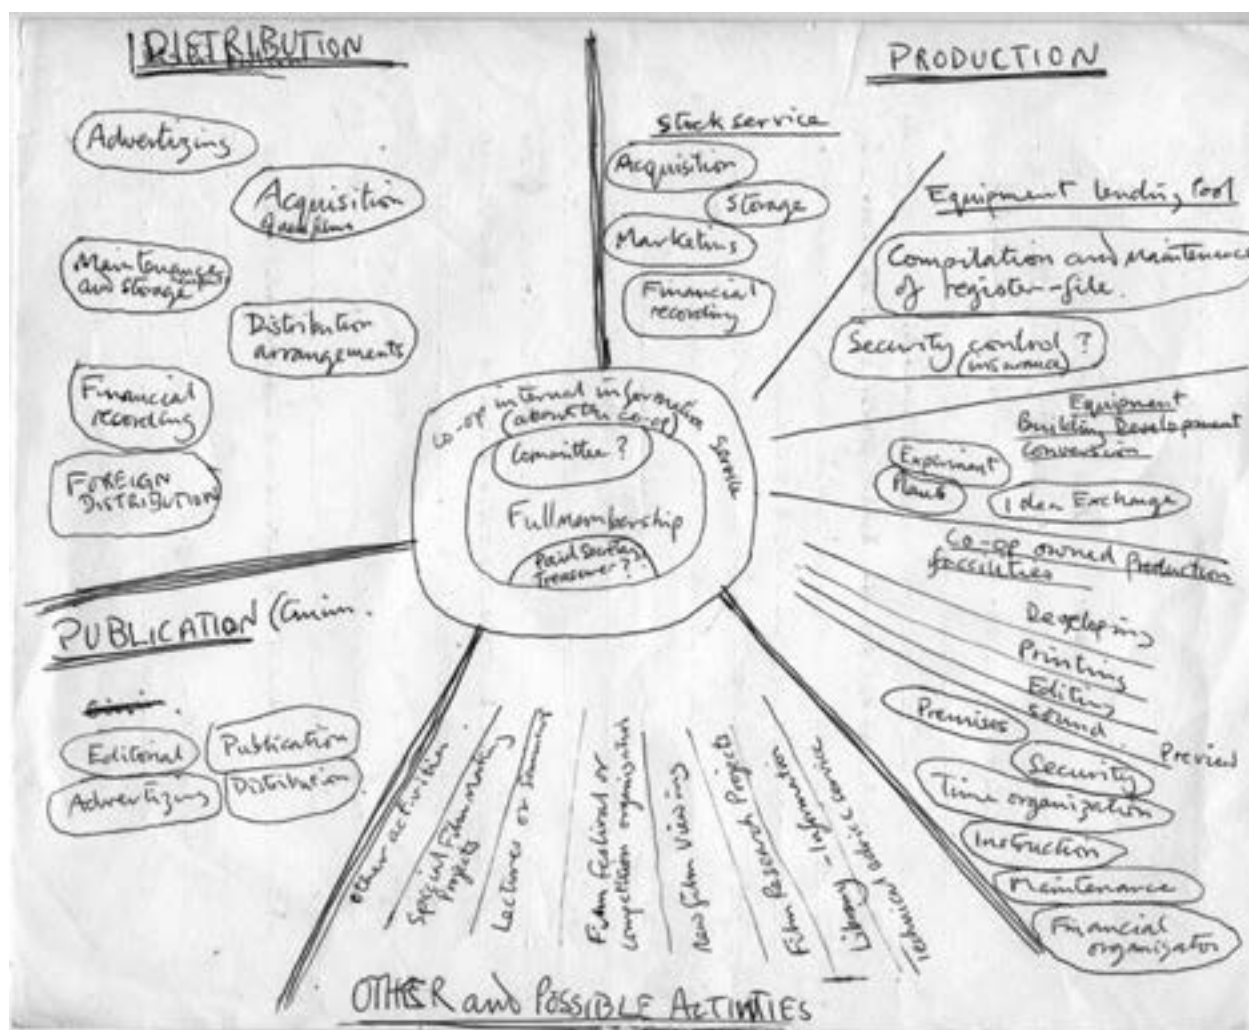 DISTRIBUTION
Advertizing
Acquisition
Maintenance
and storage
Distribution
arrangements
Financial
recording
FOREIGN
DISTRIBUTION
PRODUCTION
Stock service
Acquisition
Storage
Marketing
Financial
recording
Equipment lending Pool
Compilation and Maintenance
of register-file.
Security control ?
insurance
Equipment
Building Development
Conversion
Experiment
Plans
Idea Exchange
Co-op owned production
facilities
Developing
Printing
Editing
Sound
Preview
Premises
Security
Time organization
Instruction
Maintenance
Financial
organizator
co-op internal information service
(about the co-op)
Committee ?
Full membership
Paid Secretary
Treasurer ?
PUBLICATION (
Editorial
Publication
Advertizing
Distribution
Other activities
Special Film Making
Projects
Lectures or
Film Festival or
competition organization
New Film Viewing
Film Research Projects
Library - Information
Technical advice service
OTHER and POSSIBLE ACTIVITIES